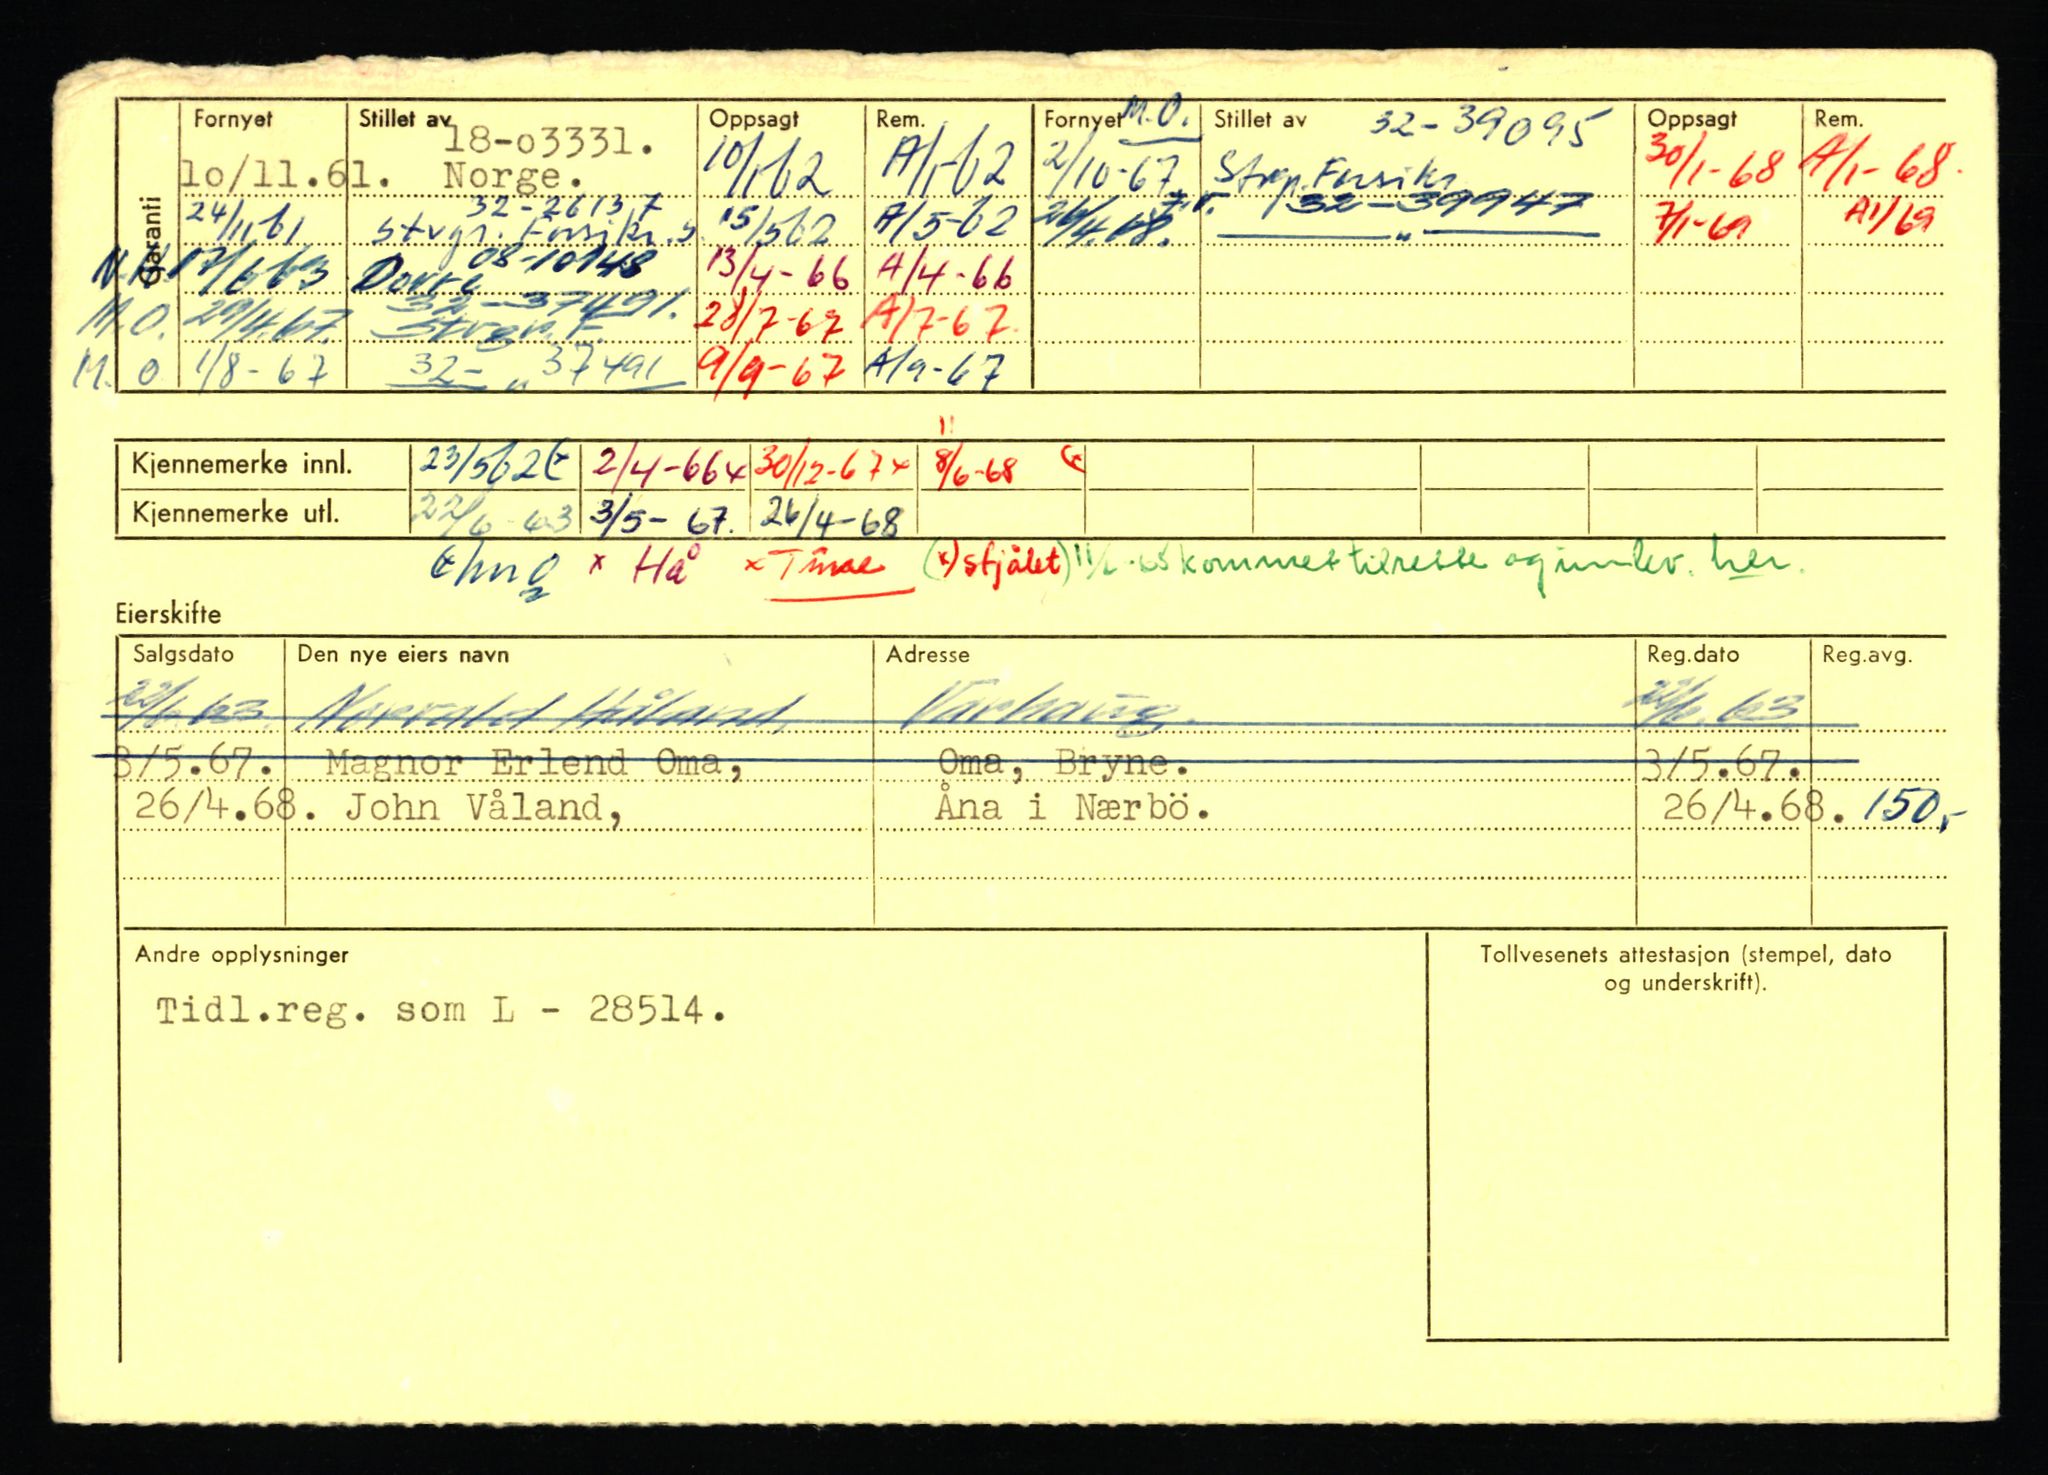 Garanti
Fornyet Stillet av Oppsagt Rem. Fornyet M.O. Stillet av 32-39095 Oppsagt Rem.
18-o3331.
1o/11.61. Norge. 10/1-62 A/1-62 2/10-67 Stvgr. Forsikr. 30/1-68 A/1-68.
32-26137
24/11.61 Stvgr. Forsikr.s. 15/5 62 A/5-62 26/4.68. 32-39947 7/1-69 A1/69
08-10148
N.H. 17/6 63 Dovre 13/4-66 A/4-66
32-37491.
M.O. 29/4.67. Stvgr. F. 28/7-67 A/7-67.
M. O 1/8-67 32- „ 37491 9/9-67 A/9-67
11
Kjennemerke innl. 23/5 62 2/4-66x 30/12-67x 8/6-68
Kjennemerke utl. 22/6-63 3/5-67. 26/4-68
x Hå x Time (x) stjålet) 11/6-68 kommet tilrette og innlev. her.
Eierskifte
Salgsdato Den nye eiers navn Adresse Reg.dato Reg.avg.
22/6.63. Norvald Håland, Varhaug. 22/6.63
3/5.67. Magnor Erlend Oma, Oma, Bryne. 3/5.67.
26/4.68. John Våland, Åna i Nærbö. 26/4.68. 150,-
Andre opplysninger
Tollvesenets attestasjon (stempel, dato
og underskrift).
Tidl.reg. som L - 28514.